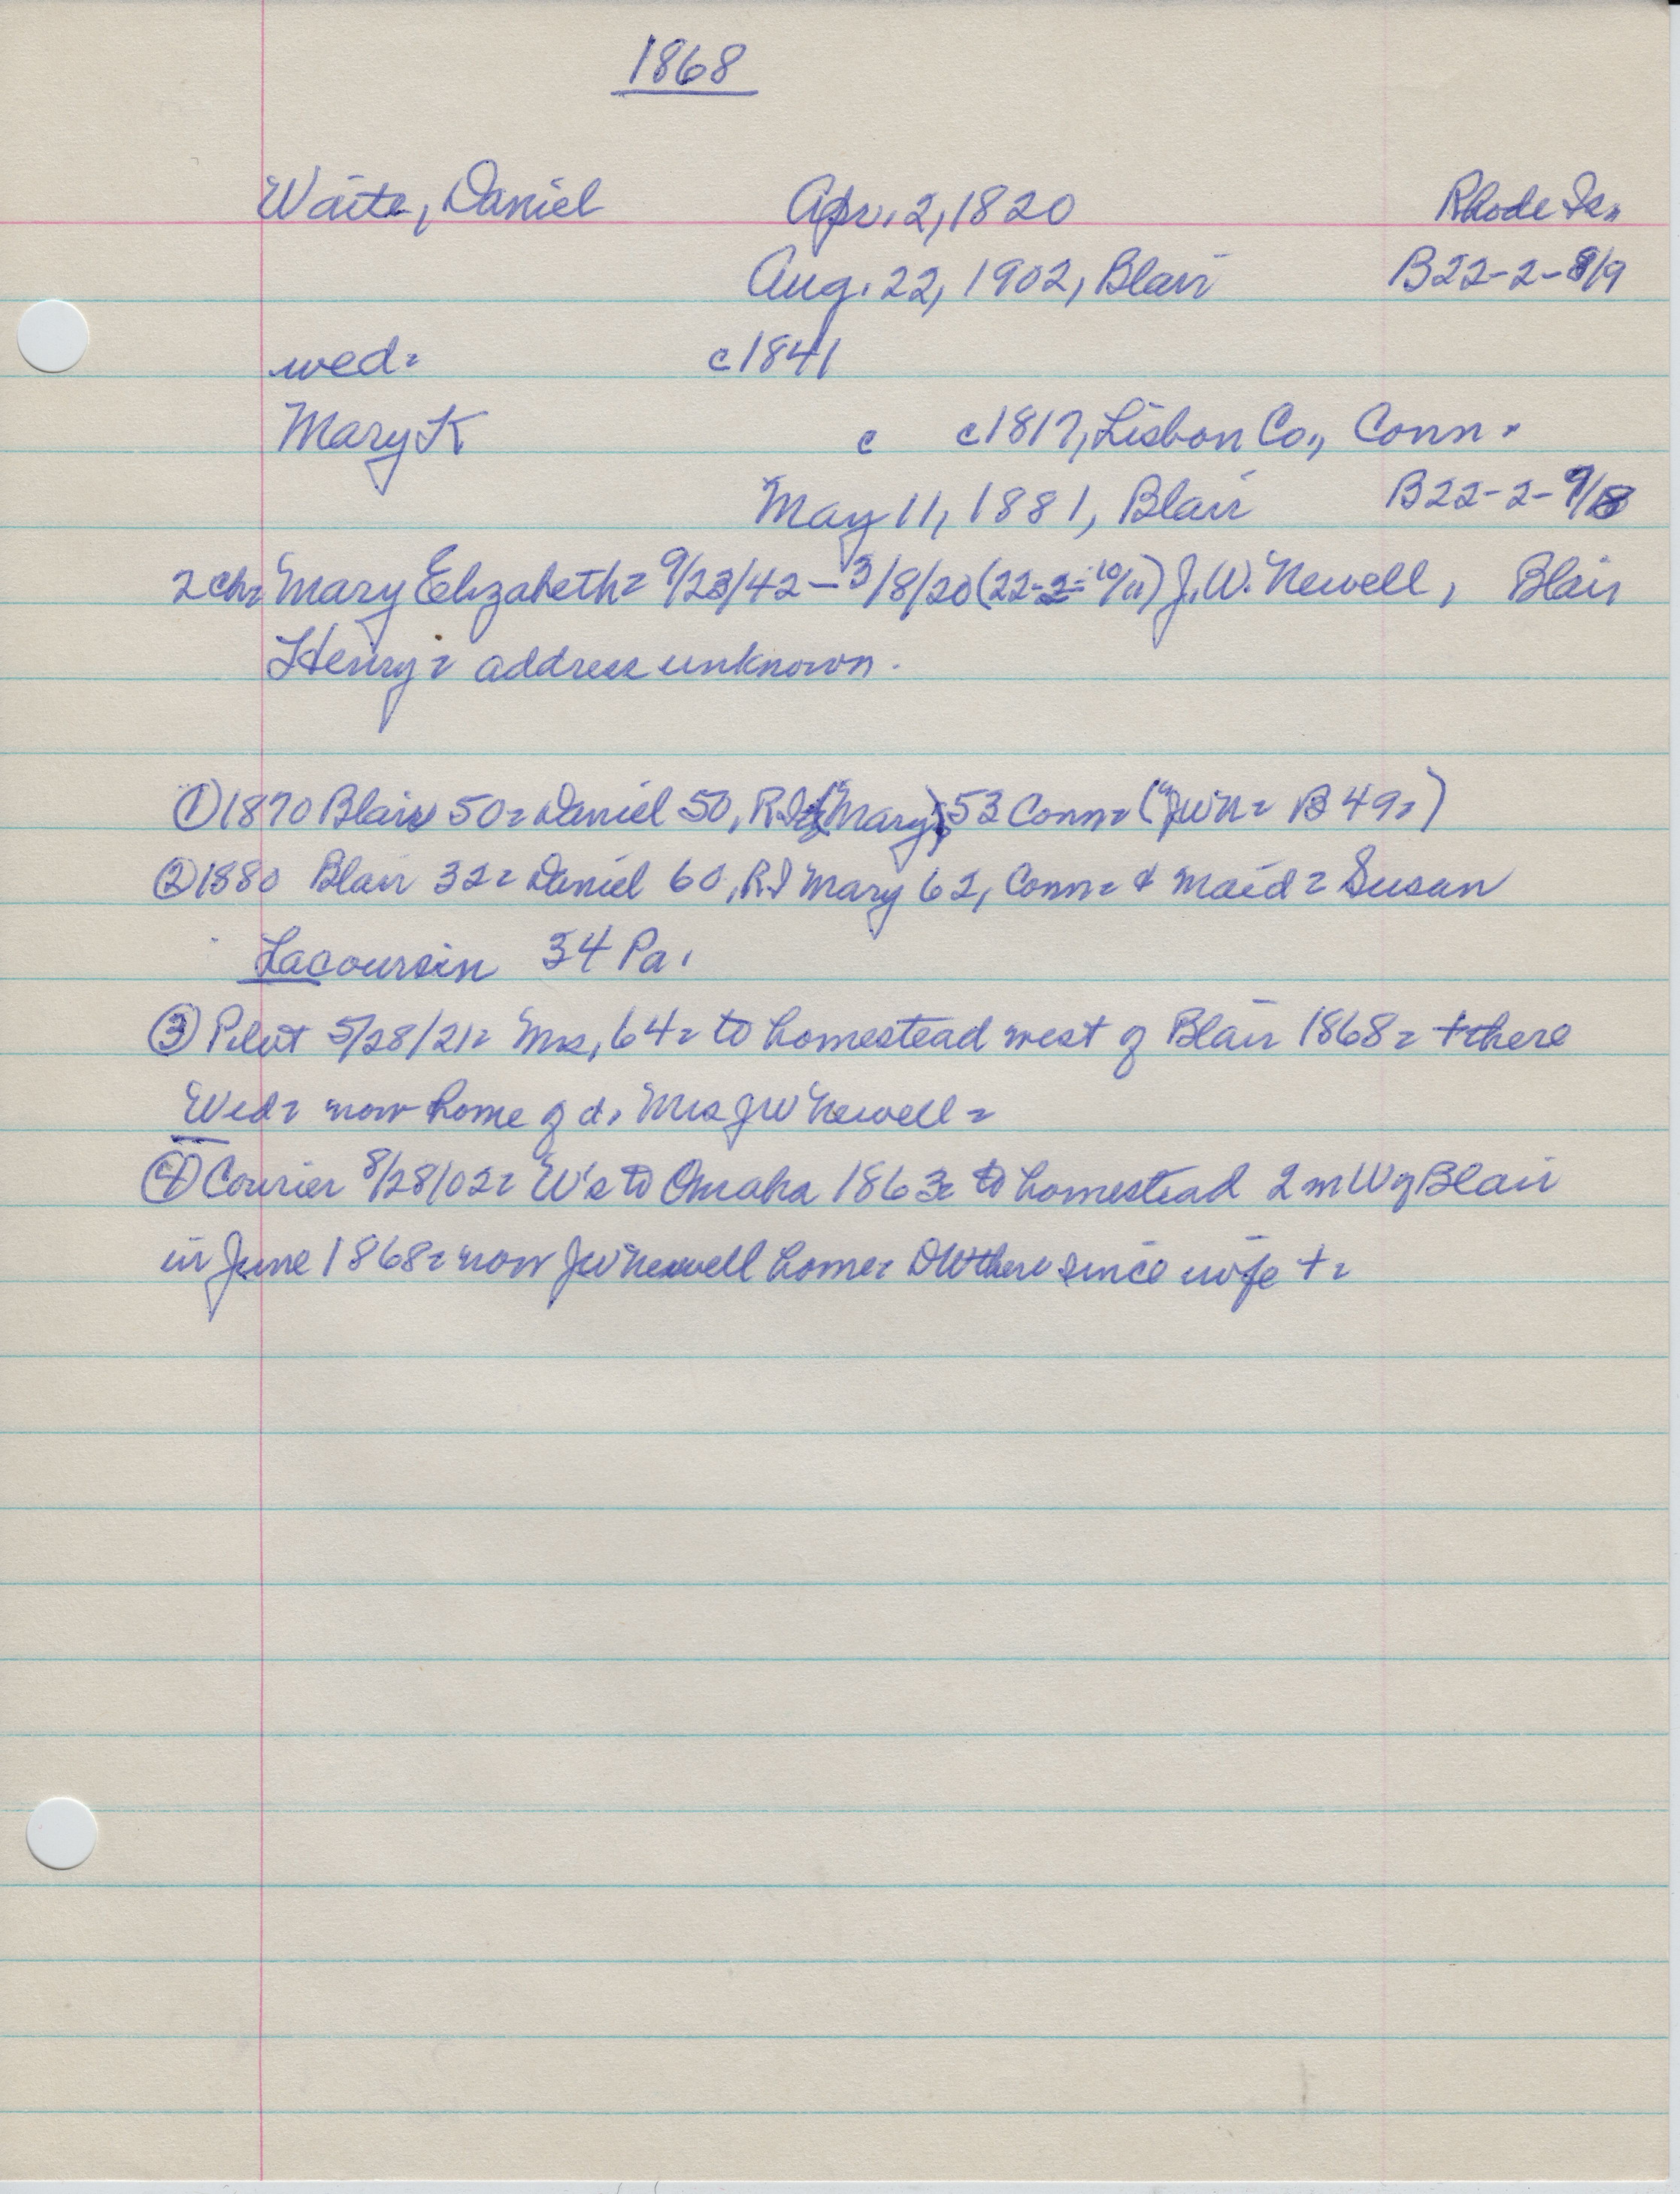 1868
Waite, Daniel Apr. 2, 1820 Rhode Is.
Aug. 22, 1902, Blair B22-2-8/9
wed= c1841
Mary K c c1817, Lisbon Co., Conn.
May 11, 1881, Blair B22-2-9/8
2 ch= Mary Elizabeth= 9/23/42 - 3/8/20 (22-2-10/11) J.W. Newell, Blair
Henry= address unknown.
① 1870 Blair 50= Daniel 50, RI (Mary) 53 Conn= (JWN= B 49=)
② 1880 Blair 32= Daniel 60, RI Mary 62, Conn= & maid= Susan
Lacoursin 34 Pa.
③ Pilot 5/28/21= Mrs, 64= to homestead west of Blair 1868= + there
Wed= now home of d. Mrs JW Newell=
④ Courier 8/28/02= W's to Omaha 1863= to homestead 2 m W of Blair
in June 1868= now JW Newell home= DW there since wife +=